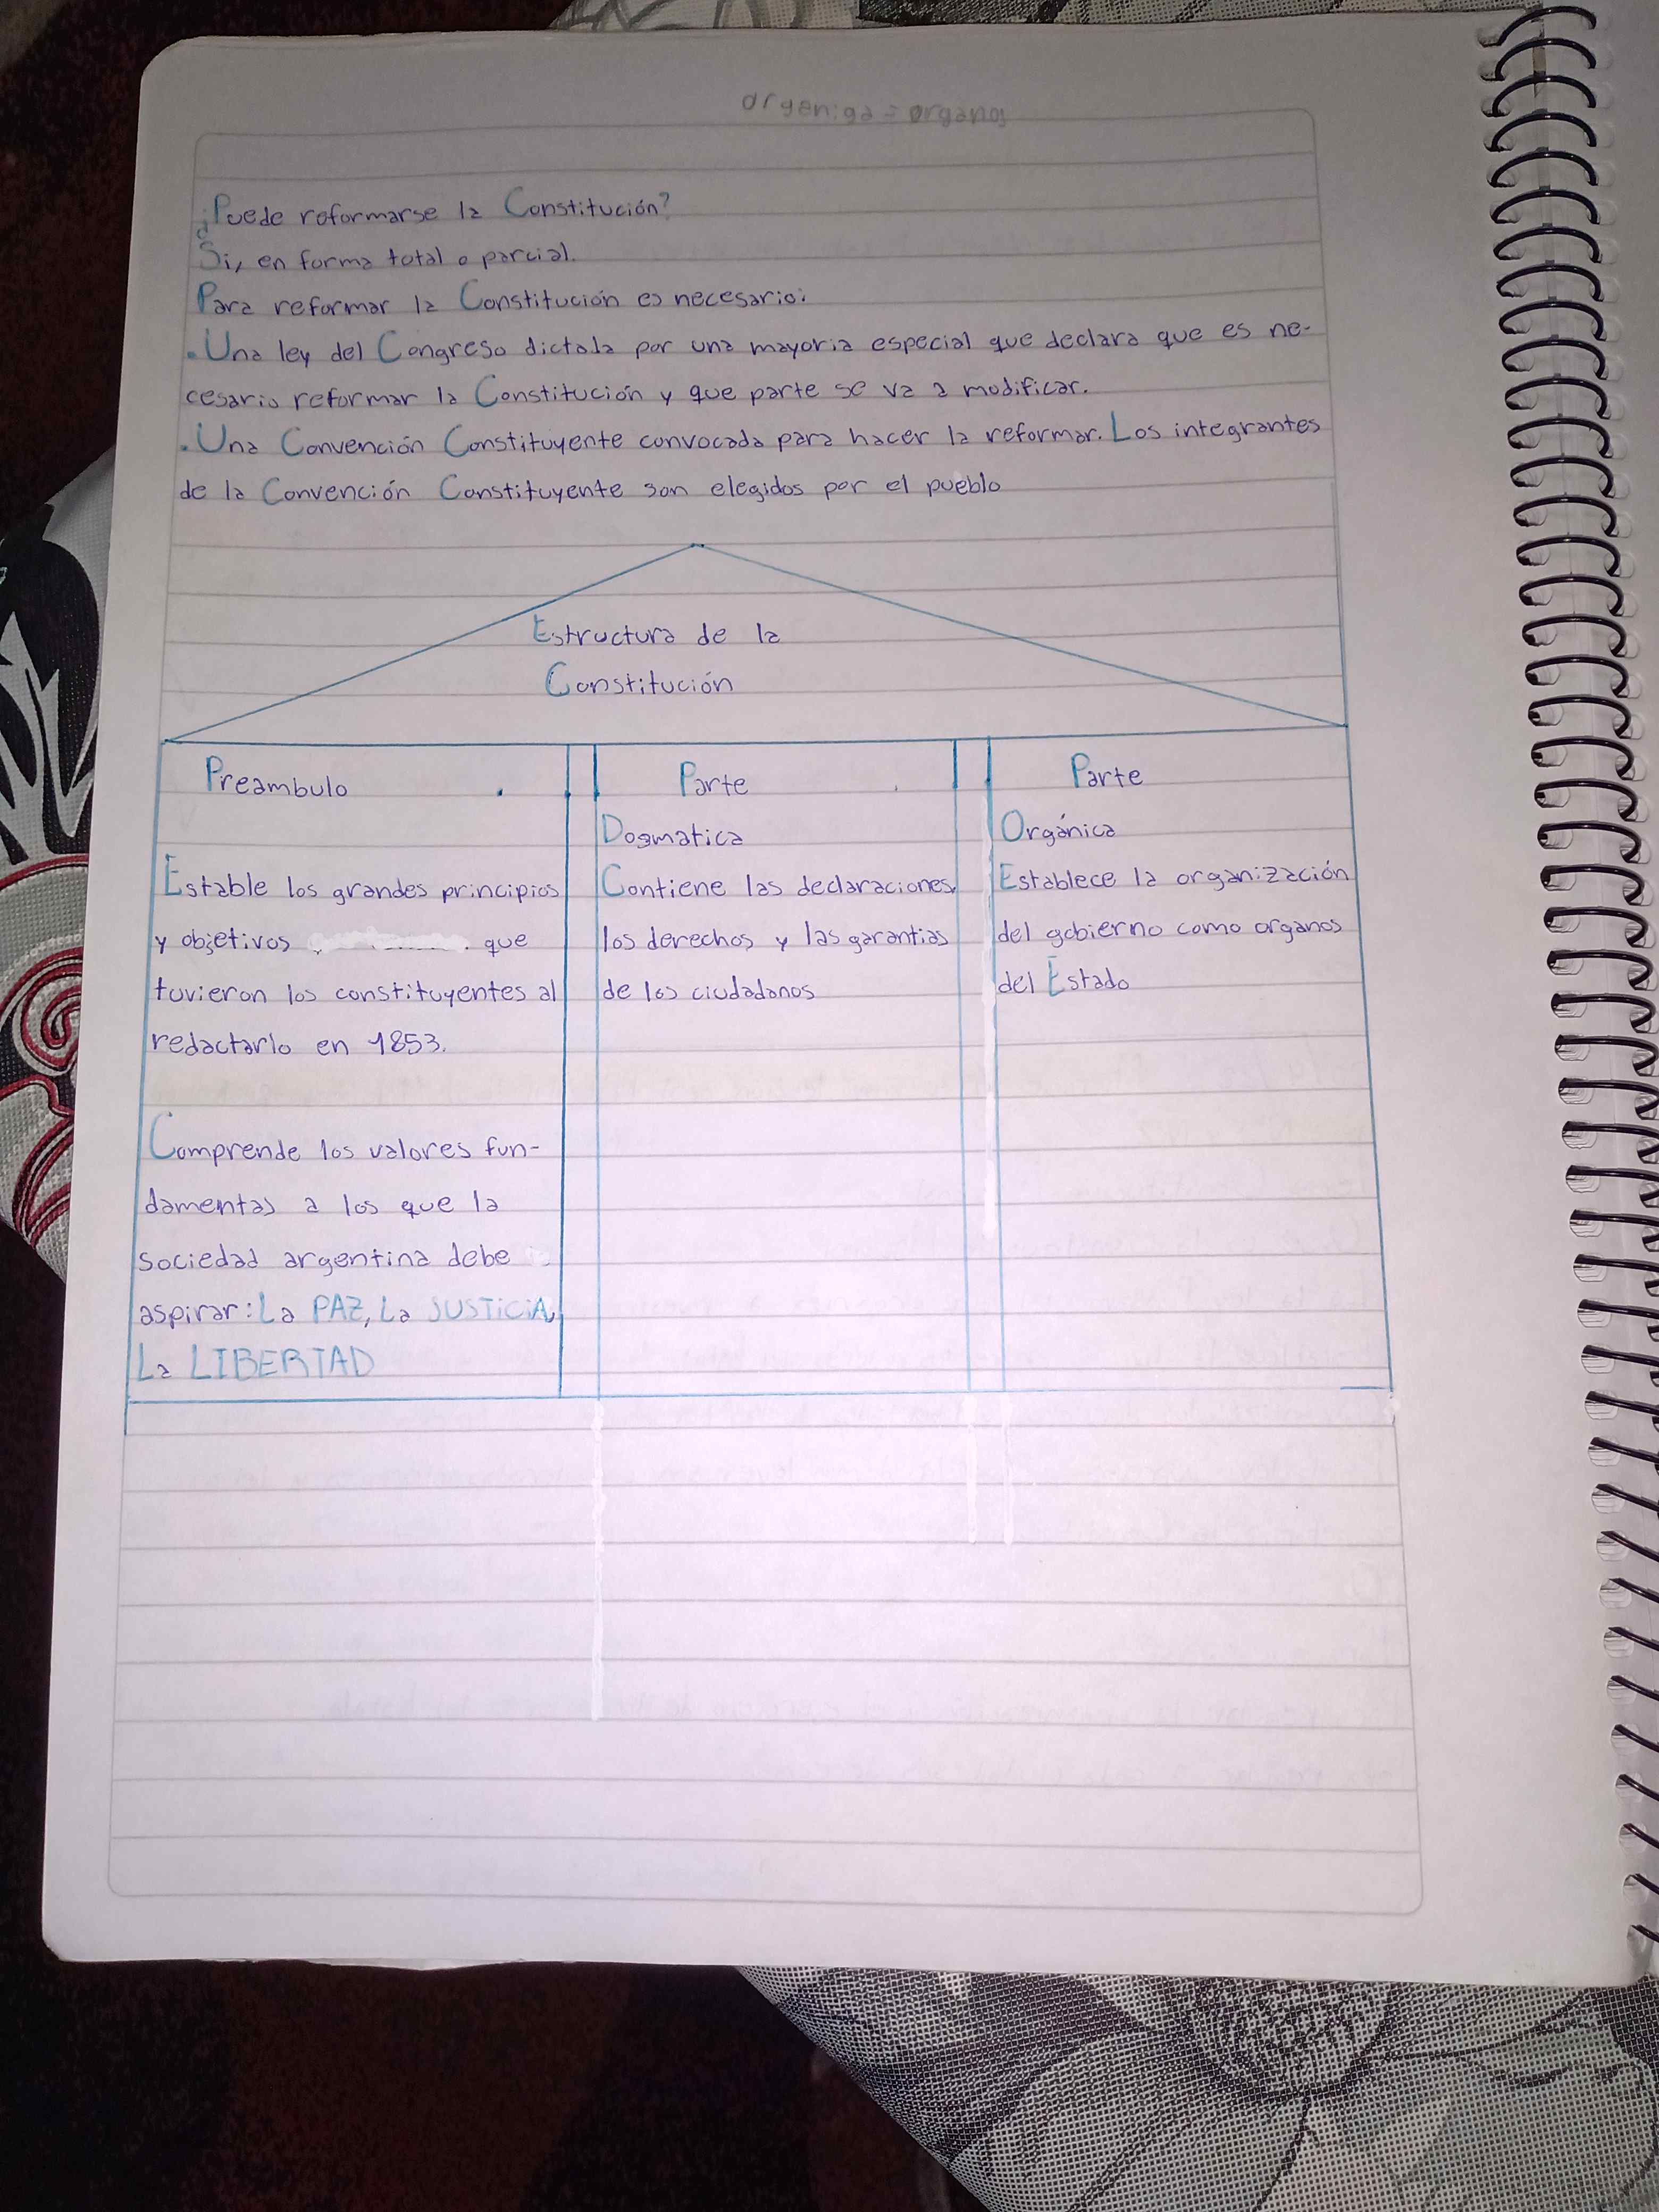 orgeniga = organos
¿Puede reformarse la Constitución?
Si, en forma total o parcial.
Para reformar la Constitución es necesario:
. Una ley del Congreso dictada por una mayoria especial que declara que es ne-
cesario reformar la Constitución y que parte se va a modificar.
. Una Convención Constituyente convocada para hacer la reformar. Los integrantes
de la Convención Constituyente son elegidos por el pueblo
Estructura de la
Constitución
Preambulo
Estable los grandes principios
y objetivos que
tuvieron los constituyentes al
redactarlo en 1853.
Comprende los valores fun-
damentas a los que la
sociedad argentina debe
aspirar: La PAZ, La JUSTICIA,
La LIBERTAD
Parte
Dogmatica
Contiene las declaraciones,
los derechos y las garantias
de los ciudadanos
Parte
Orgánica
Establece la organización
del gobierno como organos
del Estado